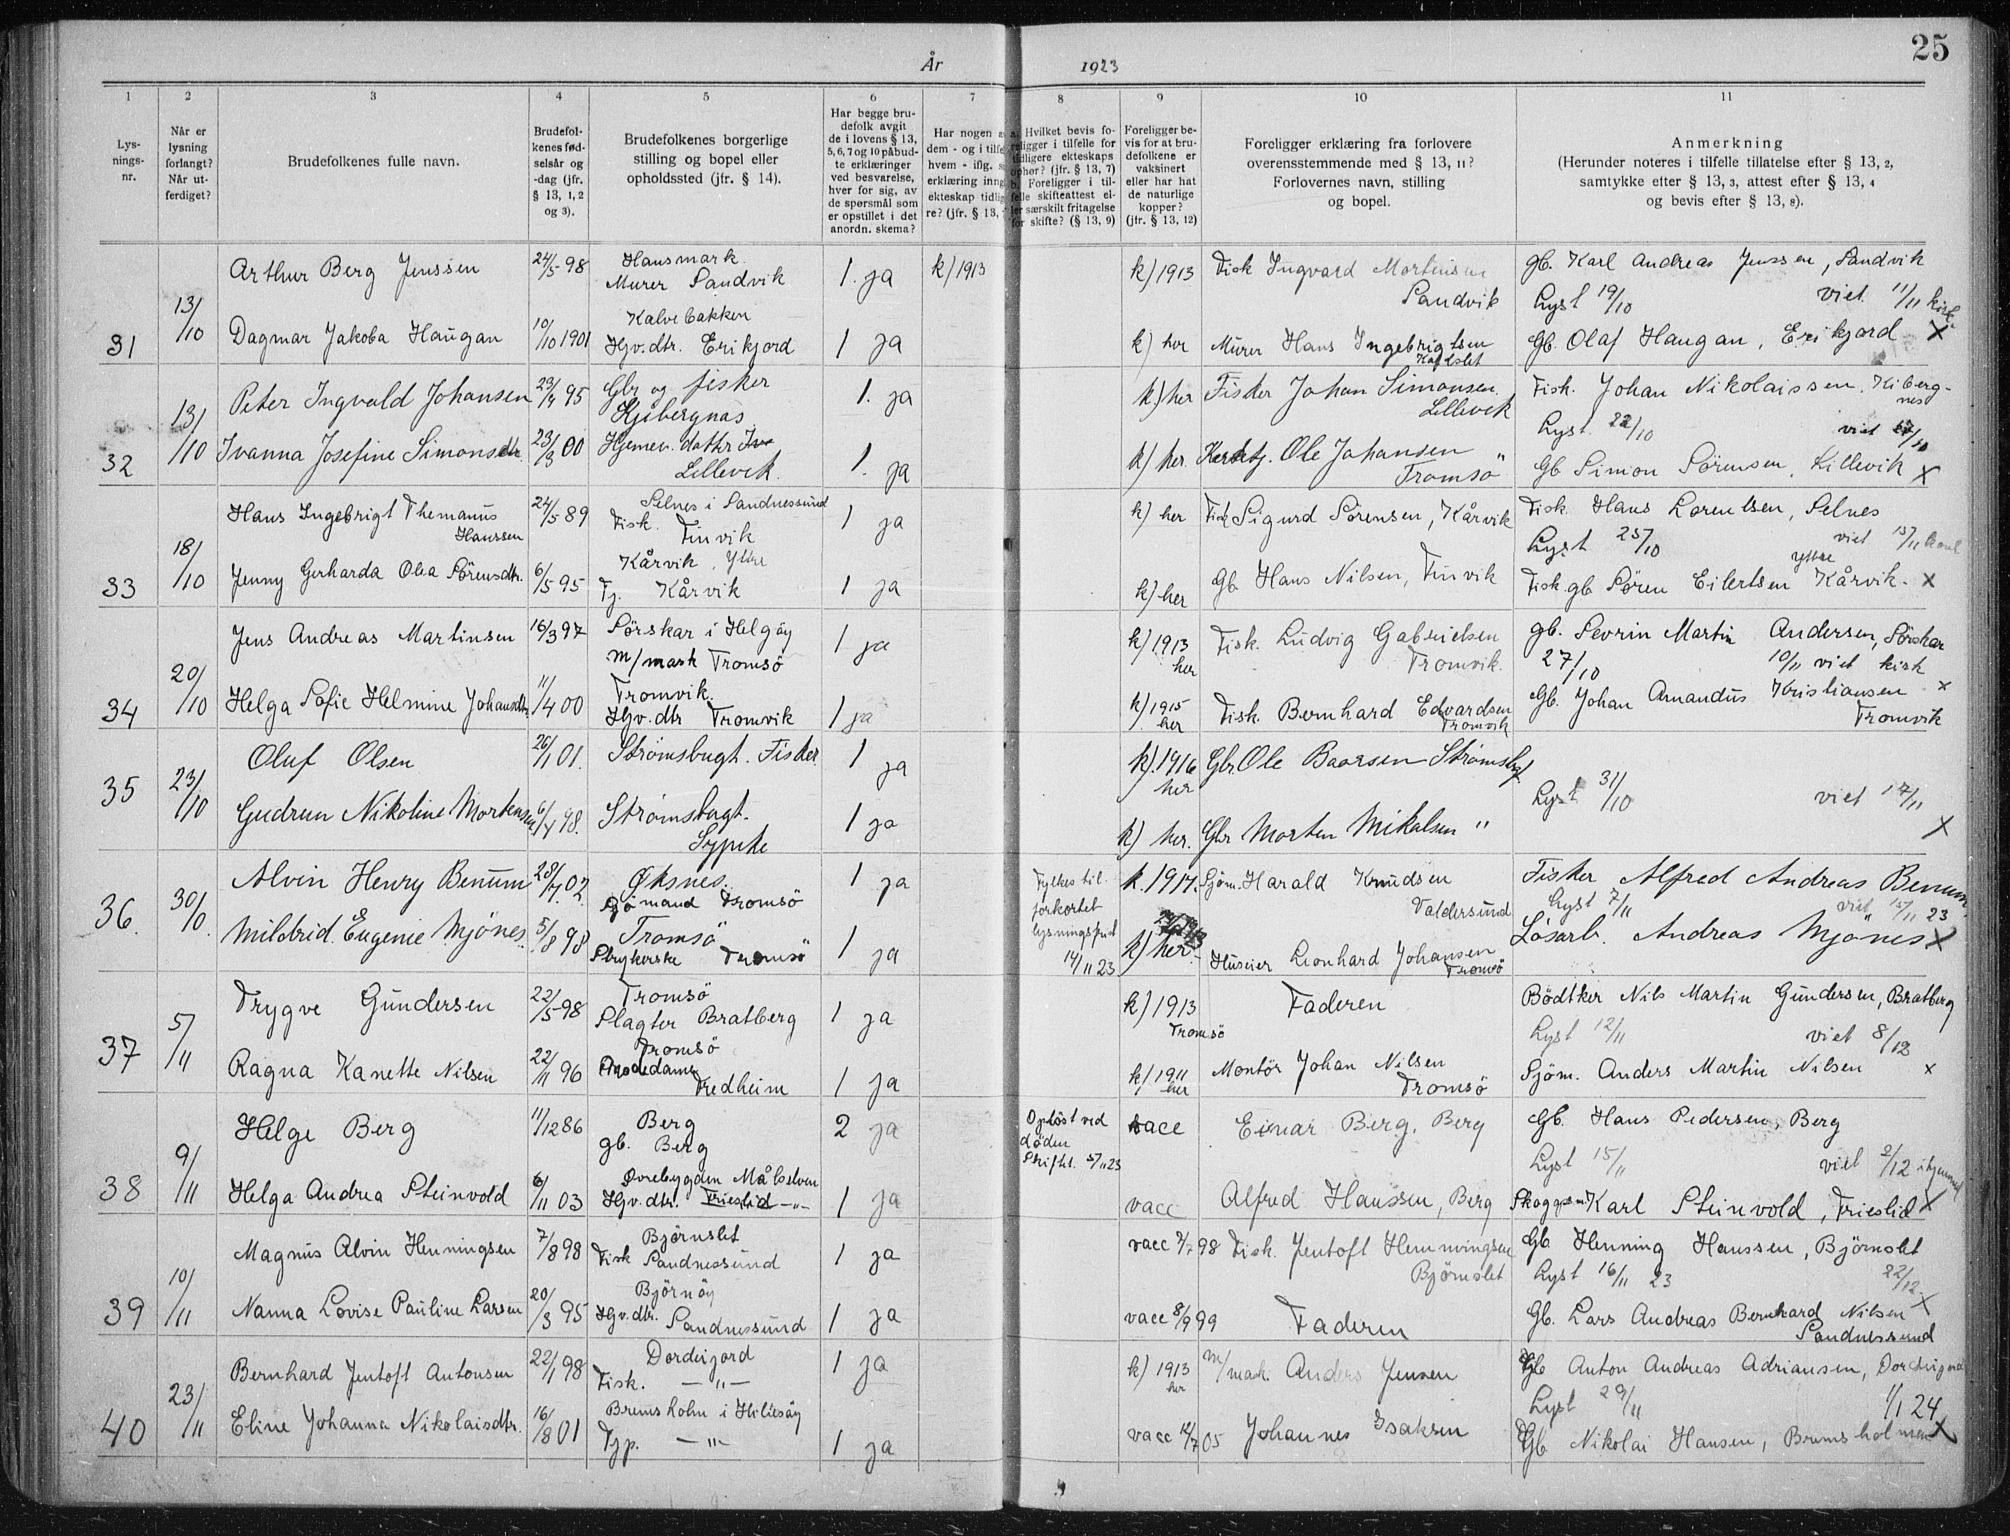 25
År 1923
1 2 3 4 5 6 7 8 9 10 11
Lys-
nings-
nr.
Når er
lysning
forlangt?
Når ut-
ferdiget?
Brudefolkenes fulle navn.
Brudefol-
kenes fød-
selsår og
-dag (jfr.
§ 13, 1, 2
og 3).
Brudefolkenes borgerlige
stilling og bopel eller
opholdssted (jfr. § 14).
Har begge bru-
defolk avgit
de i lovens § 13,
5, 6, 7 og 10 påbud-
te erklæringer
ved besvarelse,
hver for sig, av
de spørsmål som
er opstillet i det
anordn. skema?
Har nogen a
dem - og i tilfe
hvem - iflg. s
erklæring inng
ekteskap tidlig
re? (jfr. § 13,
a. Hvilket bevis fo-
religger i tilfelle for
tidligere ekteskaps
ophør? (jfr. § 13, 7)
b. Foreligger i til-
felle skifteattest el-
ler særskilt fritagelse
for skifte? (§ 13, 9)
Foreligger be-
vis for at bru-
defolkene er
vaksinert
eller har hat
de naturlige
kopper?
(jfr. § 13, 12)
Foreligger erklæring fra forlovere
overensstemmende med § 13, 11?
Forlovernes navn, stilling
og bopel.
Anmerkning
(Herunder noteres i tilfelle tillatelse efter § 13, 2,
samtykke efter § 13, 3, attest efter § 13, 4
og bevis efter § 13, 8).
31 13/10
Arthur Berg Jenssen 24/5 98 Hansmark. Murer Sandvik 1. ja k) 1913 k) 1913 Fisk Ingvard Mortensen Sandvik gb. Karl Andreas Jenssen, Sandvik
Lyst 19/10 viet 11/11 kirk.
Dagmar Jakoba Haugan 10/10 1901 Kalvebakken Hjv. dtr. Erikjord 1 ja k) her Murer Hans Ingebrigtsen Kaldslet Gb. Olaf Haugan, Erikjord X
32 13/10
Peter Ingvald Johansen 23/4 95 Gbr og fisker Kjibergnas 1. ja k) her Fisker Johan Simonsen. Lillevik Fisk. Johan Nikolaissen, Kibergnes
Lyst. 22/10 viet /10
Ivanna Josefine Simonsdtr. 23/3 00 Hjemev. dattr Lillevik. 1. ja k) her. Ole Johansen Tromsö Gb Simon Sörensen, Lillevik X
33 18/10
Hans Ingebrigt Themanus Hanssen 24/5 89 Selnes i Sandnessund Fisk. Finvik 1 ja k) her Fisk Sigurd Sörensen, Kårvik Fisk. Hans Lorentsen, Selnes
Lyst 25/10 viet 15/11
Jenny Gerharda Olea Sörensdtr. 6/5 95 Kårvik, Ytre Tj. Kårvik 1 ja k) her Gb Hans Nilsen, Finvik Fisk. gb Sören Eilertsen ytre Kårvik. X
34 20/10
Jens Andreas Martinsen 16/3 97 Sörskar i Helgöy m/mask Tromsö 1 ja k) 1913 her Fisk. Ludvig Gabrielsen Tromvik. gb. Sevrin Martin Andersen, Sörskar
27/10 10/11 viet kirk
Helga Sofie Helmine Johansdtr. 11/4 00 Tromvik. Hjv. dtr Tromvik 1 ja k) 1915 her Fisk. Bernhard Edvardsen Tromvik Gb. Johan Amandus Kristiansen Tromvik X
35 23/10
Oluf Olsen 26/1 01. Strømsbugt. Fisker 1 ja k). 1916 her Gbr Ole Baarsen Strømsbgt
Lyst 31/10 viet 17/11
Gudrun Nikoline Mortensen 6/4 98. Strømsbugt. Sypike 1 ja k) her. Gbr Morten Mikalsen " X
36. 30/10.
Alvin Henry Benum 28/7 02. Øksnes. Sjömand Tromsö 1 ja Fylkes til. forkortet lysningsfrist 14/11 23 k. 1917. Sjöm. Harald Knudsen Valdersund Fisker Alfred Andreas Benum.
Lyst 7/11 viet 15/11 23
Mildrid Eugenie Mjönes. 5/8 98 Tromsö Strykerske Tromsö 1 ja k) her. Huseier Leonhard Johansen Tromsö Lösarb. Andreas Mjönes X
37 5/11
Trygve Gundersen 22/5 98 Tromsö Slagter Bratberg 1 ja k) 1913 Tromsö Faderen Bödtker Nils Martin Gundersen, Bratberg
Lyst 12/11 viet 8/12
Ragna Kanette Nilsen 22/11 96 Tromsö Modedame Fredheim 1 ja k) 1911 her Montör Johan Nilsen Tromsö Sjöm. Anders Martin Nilsen X
38 9/11
Helge Berg 11/12 86 Berg gb. Berg 2 ja Oplöst ved döden Skifte. 5/11 23 vacc Einar Berg, Berg Gb. Hans Pedersen, Berg
Lyst 15/11 viet 2/12 i hjemmet
Helga Andrea Steinvold 6/11 03 Øvrebygden Målselven Hjv. dtr. Frieslid -"- 1 ja vacc Alfred Hanssen, Berg Skogopsm Karl Steinvold, Frieslid X
39 10/11
Magnus Alvin Henningsen 7/8 98 Björnslet Fisk Sandnessund 1 ja vacc 7/7 98 Fisk. Jentoft Hemmingsen Björnslet Gb Henning Hanssen, Björnslet
Lyst 16/11 23 22/12
Nanna Lovise Pauline Larsen 20/3 95 Björnöy Hjv. dtr. Sandnessund 1 ja vacc 8/9 99 Faderen Gb. Lars Andreas Bernhard Nilsen Sandnessund X
40 23/11
Bernhard Jentoft Antonsen 22/1 98 Dordeijord Fisk. -"- 1 ja k) 1913 her m/mask. Anders Jensen Gb Anton Andreas Adriansen, Dordeijord
Lyst 29/11 1/1 24
Eline Johanna Nikolaisdtr. 16/8 01 Bremsholm i Hillesöy Tjp. -"- 1 ja vacc 12/7 05 Johannes Isaksen Gb Nikolai Hansen, Bremsholmen X